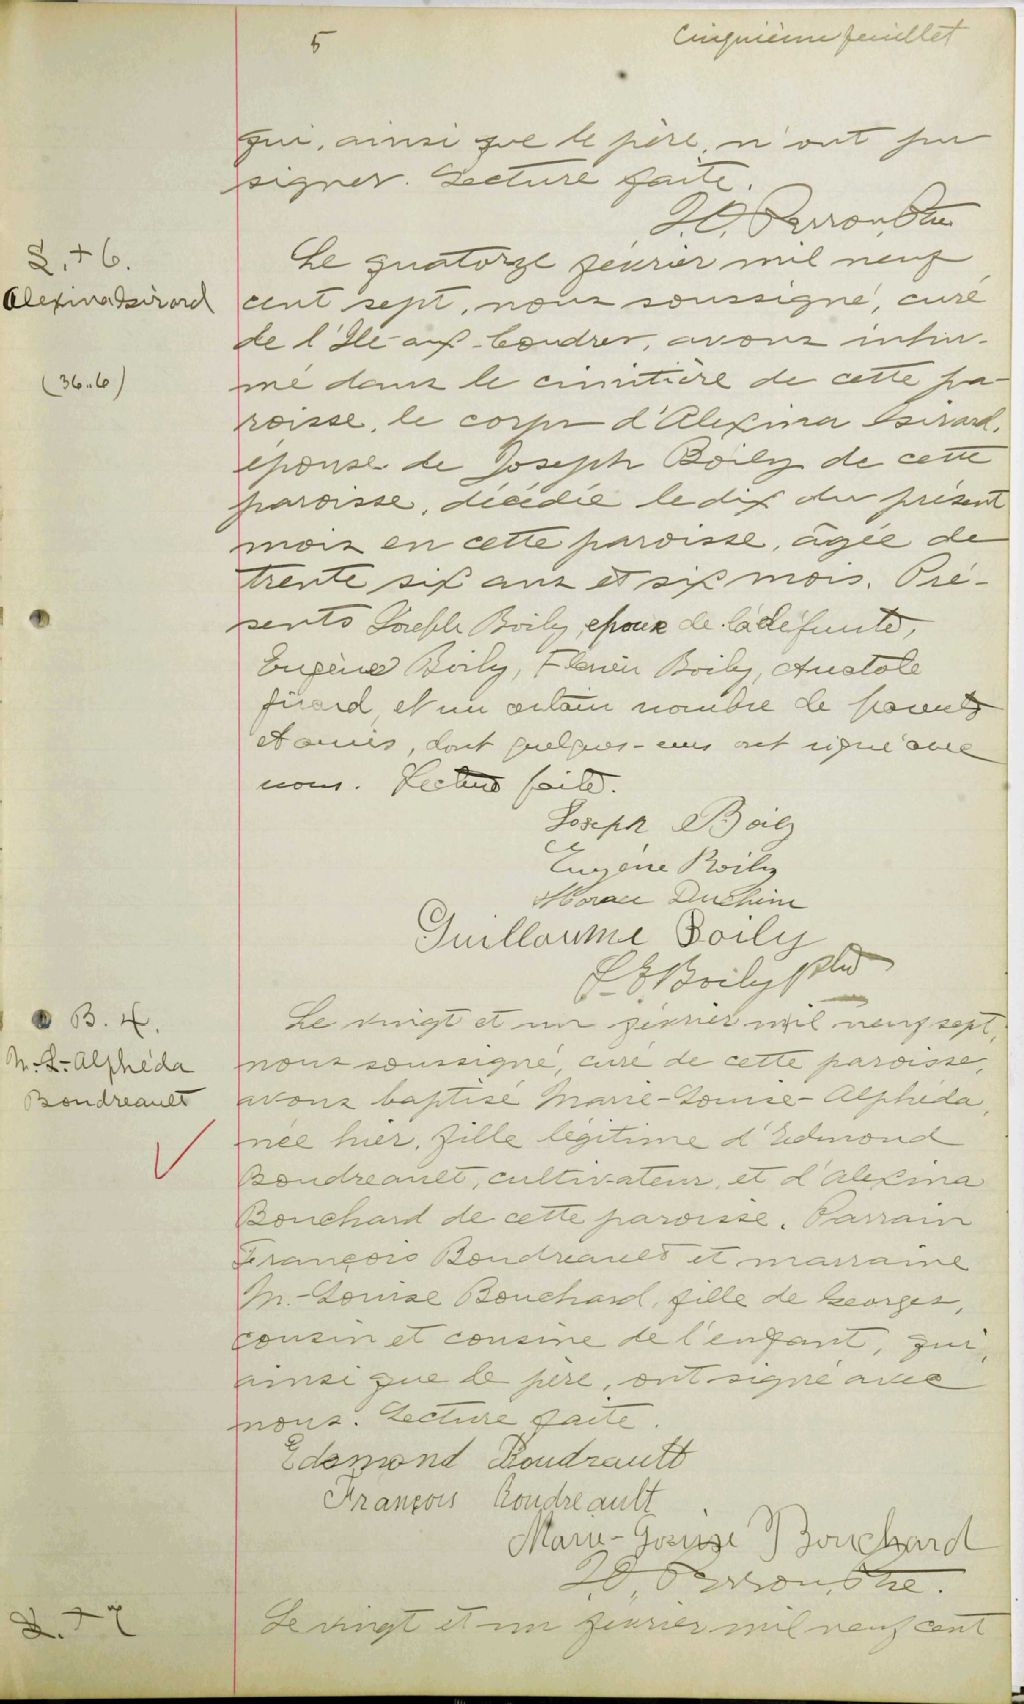 5
Cinquième feuillet
qui, ainsi que le père, n'ont pu
signer. Lecture faite.
J.O. Perron, Ptre
S. + 6.
Alexina Girard
(36..6)
Le quatorze février mil neuf
cent sept, nous soussigné, curé
de l'Ile-aux-Coudres, avons inhu-
mé dans le cimitière de cette pa-
roisse, le corps d'Alexina Girard,
épouse de Joseph Boily de cette
paroisse, décédée le dix du présent
mois en cette paroisse, âgée de
trente six ans et six mois. Pré-
sents Joseph Boily, epoux de la défunte,
Eugène Boily, Boily, Anatole
Girard, et un certain nombre de parents
et amis, dont quelques-uns ont signé avec
nous. Lecture faite.
Joseph Boily
Eugène Boily
Horace Duchine
Guillaume Boily
Boily Ptre
B. 4.
M.-L.-Alphéda
Boudreault
Le vingt et un février mil neuf sept,
nous soussigné, curé de cette paroisse,
avons baptisé Marie-Louise-Alphéda,
née hier, fille légitime d'Edmond
Boudreault, cultivateur, et d'Alexina
Bouchard de cette paroisse. Parrain
François Boudreault et marraine
M.-Louise Bouchard, fille de Georges,
cousin et cousine de l'enfant, qui,
ainsi que le père, ont signé avec
nous. Lecture faite.
Edmond Boudreault
François Boudreault
Marie-Louise Bouchard
J.O. Perron, Ptre.
S. + 7
Le vingt et un février mil neuf cent